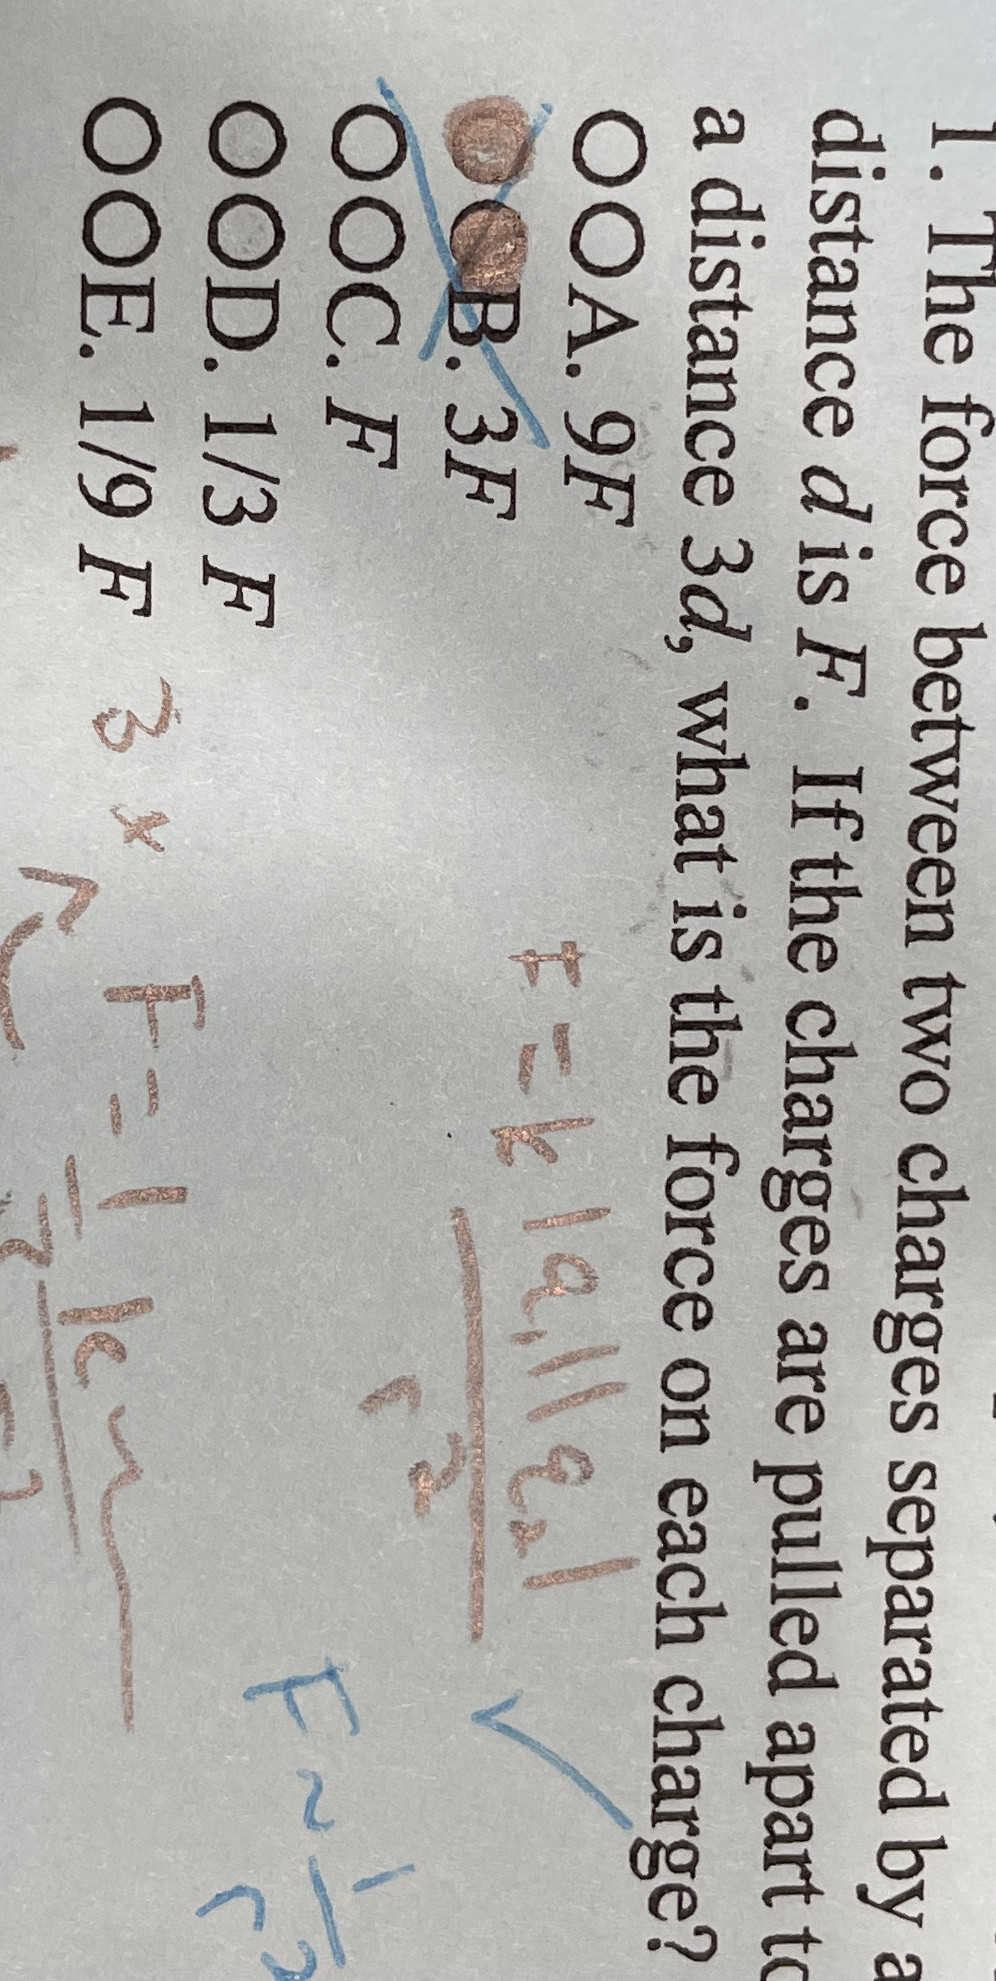 1. The force between two charges separated by a
distance d is F. If the charges are pulled apart to
a distance 3d, what is the force on each charge?
A. 9F
B. 3F
C. F
D. 1/3 F
E. 1/9 F
F = k |q₁||q₂|
r²
F ~ 1
r²
3 x
F =